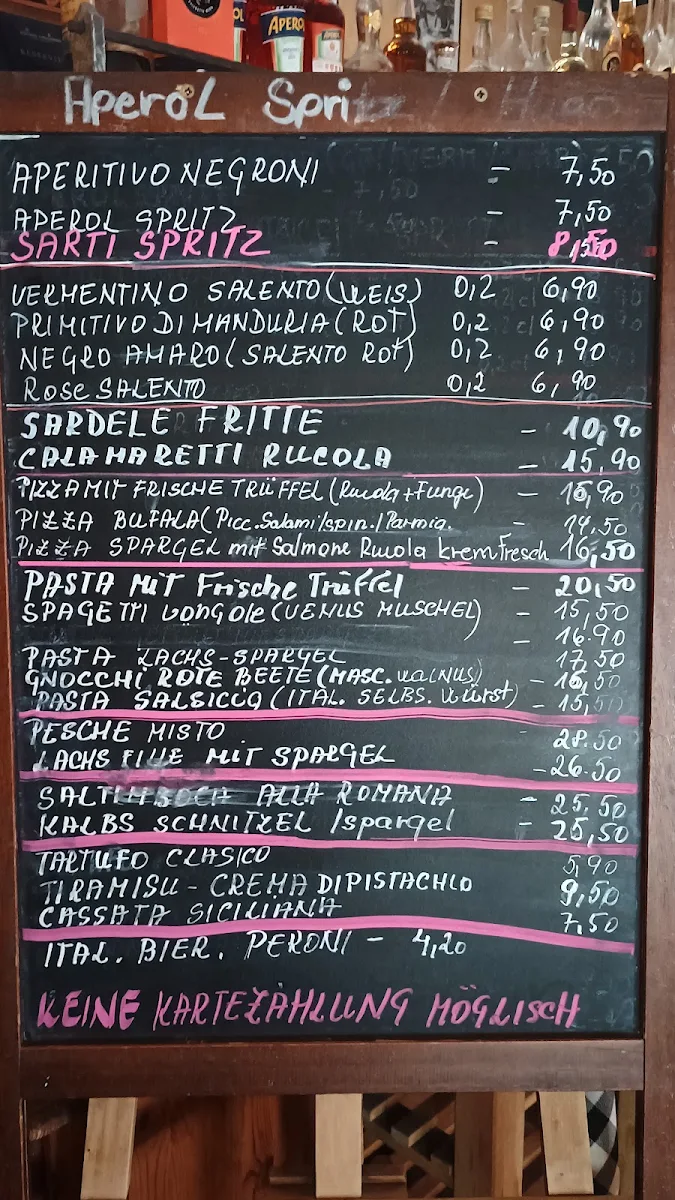 APEROL
AperoL Spritz /
APERITIVO NEGRONI - 7,50
APEROL SPRITZ - 7,50
SARTI SPRITZ - 8,50
VERMENTINO SALENTO (WEIS) 0,2 6,90
PRIMITIVO DI MANDURIA (ROT) 0,2 6,90
NEGRO AMARO (SALENTO ROT) 0,2 6,90
Rose SALENTO 0,2 6,90
SARDELE FRITTE - 10,90
CALAMARETTI RUCOLA - 15,90
PIZZA MIT FRISCHE TRÜFFEL (Rucola + Fungi) - 16,90
PIZZA BUFALA (Picc. Salami/spin./Parmig. - 14,50
PIZZA SPARGEL mit Salmone Rucola kremFresch 16,50
PASTA MIT Frische Trüffel - 20,50
SPAGETTI vongole (VENUS MUSCHEL) - 15,50
- 16.90
PASTA LACHS-SPARGEL 17,50
GNOCCHI ROTE BEETE (MASC. walnus) - 16,50
PASTA SALSICCIA (ITAL. SELBS. Würst) - 15,50
PESCHE MISTO - 28.50
LACHS FILLE MIT SPARGEL - 26.50
SALTIMBOCA ALLA ROMANA - 25,50
KALBS SCHNITZEL /spargel - 25,50
TARTUFO CLASICO 5,90
TIRAMISU - CREMA DI PISTACHIO 9,50
CASSATA SICILIANA 7,50
ITAL. BIER. PERONI - 4,20
KEINE KARTEZAHLUNG MÖGLISCH